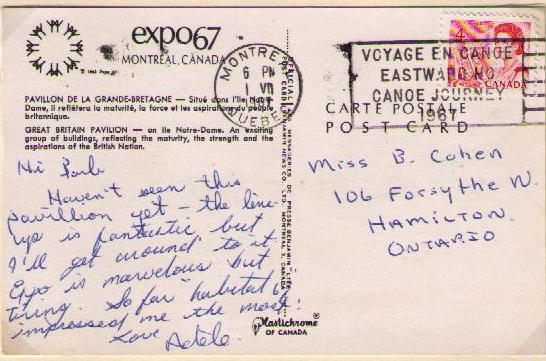 expo67
MONTRÉAL, CANADA
© 1963 Expo 67
MONTREAL
6 PM
1 VII
QUEBEC
VOYAGE EN CANOE
EASTWARD HO
CANOE JOURNEY
1967
4
CANADA
CARTE POSTALE
POST CARD
PAVILLON DE LA GRANDE-BRETAGNE — Situé dans l'île Notre-
Dame, il reflétera la maturité, la force et les aspirations du peuple
britannique.
GREAT BRITAIN PAVILION — on Ile Notre-Dame. An exciting
group of buildings, reflecting the maturity, the strength and the
aspirations of the British Nation.
Hi
Haven't seen this
pavillion yet – the line-
ups is fantastic but
I'll get around to it
Expo is marvelous but
tiring. So far "habitat 67
impressed me the most!
Love Adele.
MESSAGERIES DE PRESSE BENJAMIN LTÉE
BENJAMIN NEWS CO. LTD. MONTREAL 3, CANADA
Plastichrome®
OF CANADA
Miss B. Cohen
106 Forsythe N.
HAMILTON.
ONTARIO